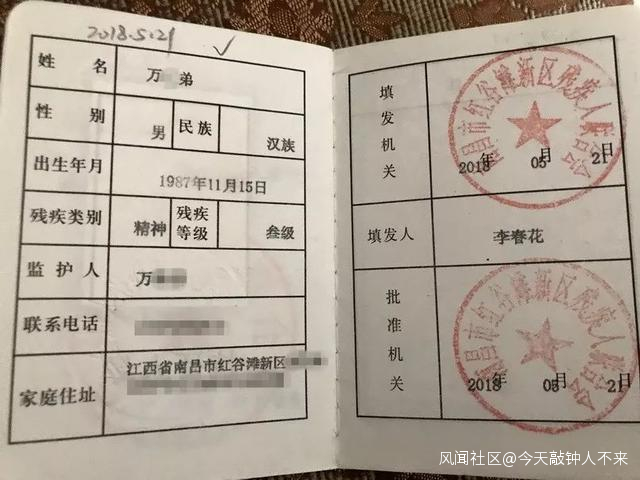 2018.5.21 ✓
姓名 万 弟
性别 男 民族 汉族
出生年月 1987年11月15日
残疾类别 精神 残疾等级 叁级
监护人 万
联系电话
家庭住址 江西省南昌市红谷滩新区
填发机关 南昌市红谷滩新区残疾人联合会
2018年 05月 21日
填发人 李春花
批准机关 南昌市红谷滩新区残疾人联合会
2018年 05月 21日
风闻社区@今天敲钟人不来